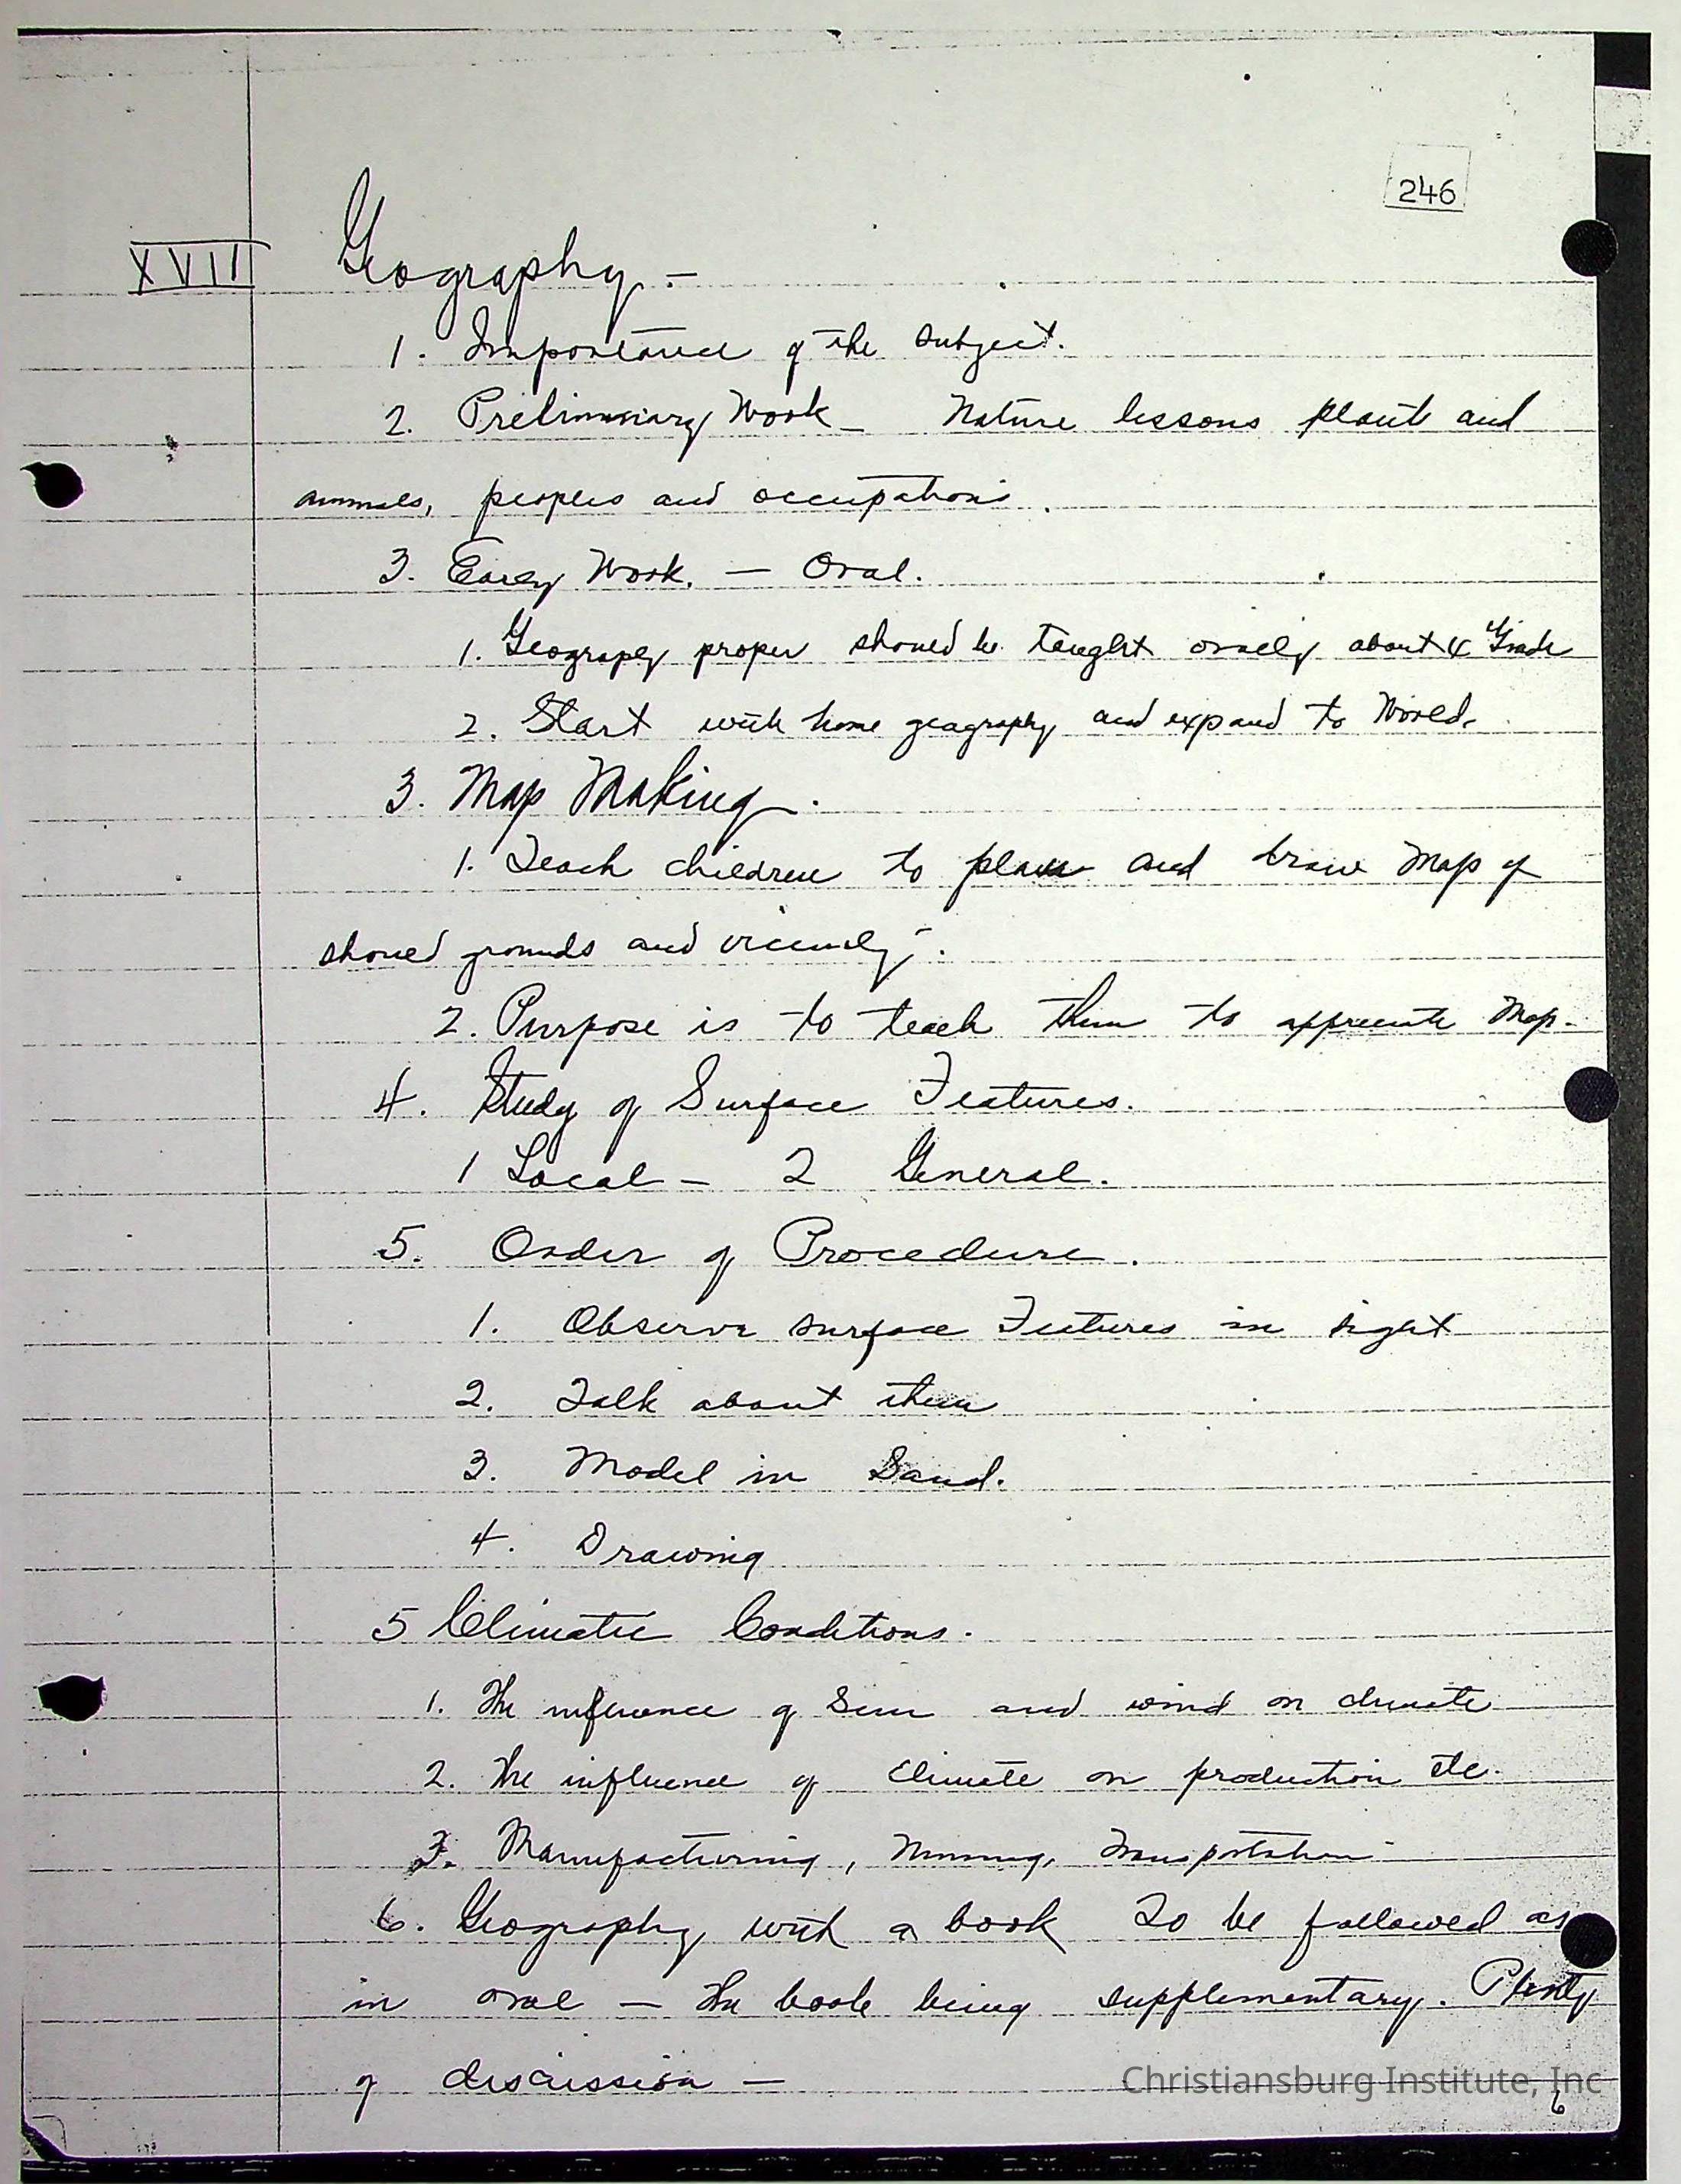 246
XVIII Geography. —
1. Importance of the subject.
2. Preliminary Work — Nature lessons plants and
animals, peoples and occupations.
3. Early Work. — Oral.
1. Geography proper should be taught orally about 4 Grade
2. Start with home geography and expand to World.
3. Map Making.
1. Teach children to plan and draw Map of
grounds and vicinity.
2. Purpose is to teach them to appreciate Map.
4. Study of Surface Features.
1 Local — 2 General.
5. Order of Procedure.
1. Observe surface Features in sight
2. Talk about them
3. Model in Sand.
4. Drawing
5 Climatic Conditions.
1. The influence of Sun and wind on climate
2. The influence of Climate on production etc.
3. Manufacturing, Mining, Transportation
6. Geography with a book To be followed as
in oral — The book being supplementary. Plenty
of discussion —
Christiansburg Institute, Inc
6